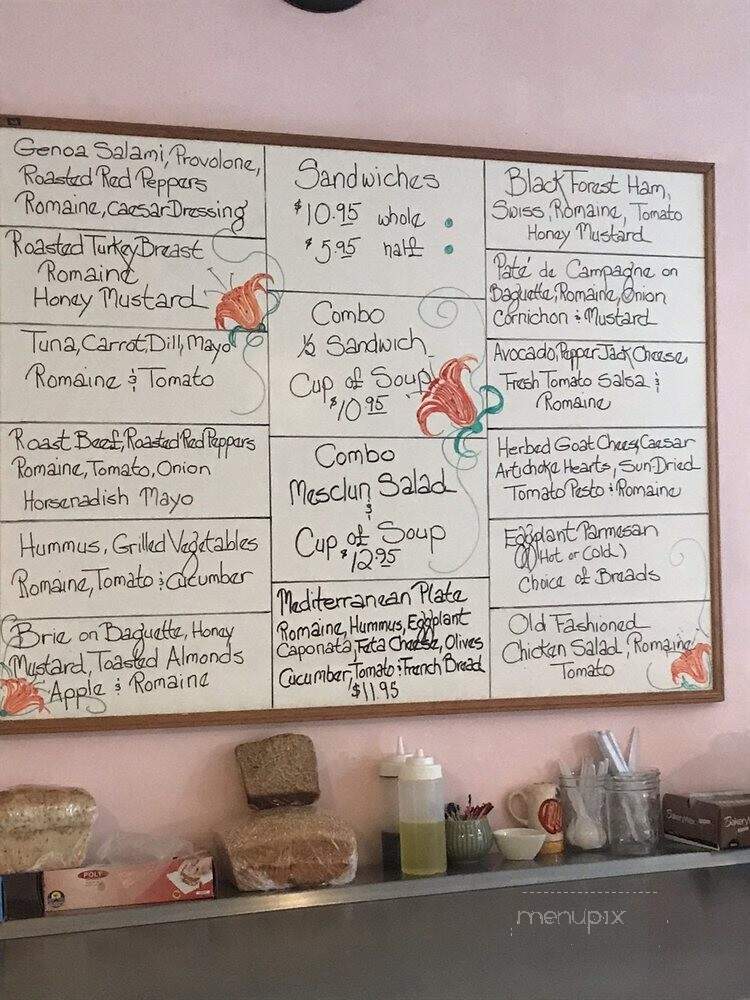 Genoa Salami, Provolone,
Roasted Red Peppers
Romaine, Caesar Dressing
Roasted Turkey Breast
Romaine
Honey Mustard
Tuna, Carrot, Dill, Mayo
Romaine & Tomato
Roast Beef, Roasted Red Peppers
Romaine, Tomato, Onion
Horseradish Mayo
Hummus, Grilled Vegetables
Romaine, Tomato & Cucumber
Brie on Baguette, Honey
Mustard, Toasted Almonds
Apple & Romaine
Sandwiches
$10.95 whole
$5.95 half
Combo
½ Sandwich
Cup of Soup
$10.95
Combo
Mesclun Salad
&
Cup of Soup
$12.95
Mediterranean Plate
Romaine, Hummus, Eggplant
Caponata, Feta Cheese, Olives
Cucumber, Tomato & French Bread
$11.95
Black Forest Ham,
Swiss, Romaine, Tomato
Honey Mustard
Paté de Campagne on
Baguette, Romaine, Onion
Cornichon & Mustard
Avocado, Pepper Jack Cheese
Fresh Tomato Salsa &
Romaine
Herbed Goat Cheese, Caesar
Artichoke Hearts, Sun-Dried
Tomato Pesto & Romaine
Eggplant Parmesan
(Hot or Cold)
Choice of Breads
Old Fashioned
Chicken Salad, Romaine
Tomato
POLY
menupix